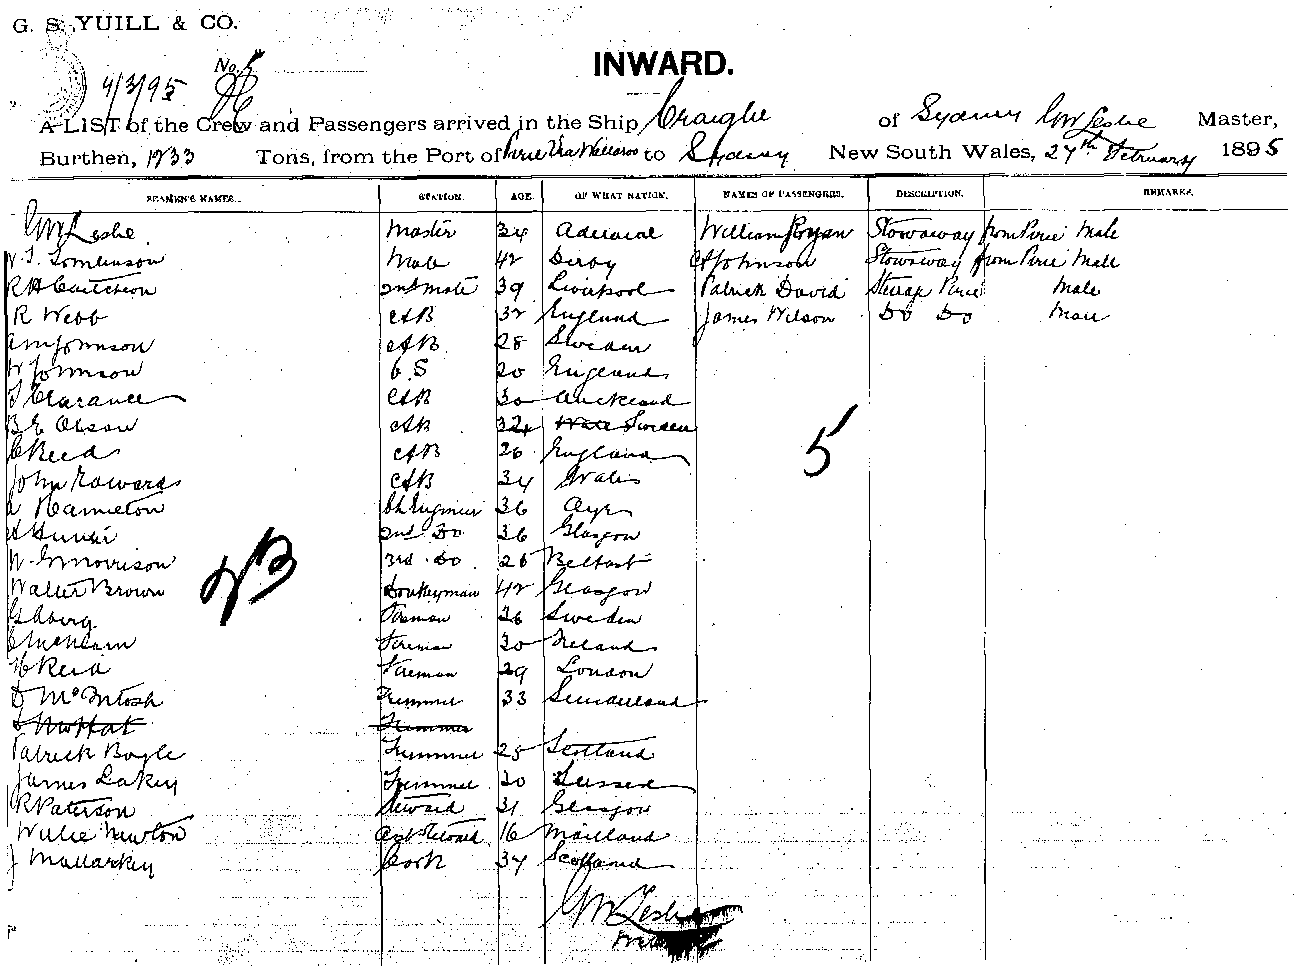 G. S. YUILL & CO.
No. 5
4/3/95
INWARD.
A LIST of the Crew and Passengers arrived in the Ship of Sydney GM Leslie Master,
Burthen, 1233 Tons, from the Port of Pirie Via Wallaroo to Sydney New South Wales, 27th February 1895
SEAMEN'S NAMES. STATION. AGE. OF WHAT NATION. NAMES OF PASSENGERS. DESCRIPTION. REMARKS.
GM Leslie Master 34 William Ryan Stowaway from Pirie Male
Tomlinson Mate 42 Derby Johnson Stowaway from Pirie Male
2nd Mate 39 Liverpool Patrick David Pirie Male
R Webb AB 32 England James Wilson Do Do Male
Johnson AB 28 Sweden
Johnson O.S 20 England
Clarance AB 30 Auckland
Olsen AB 32 Sweden
C Reed AB 26 England
John Edwards AB 34 Wales
5
Hamilton Ch Engineer 36 Ayr
Hunter 2nd Do 36 Glasgow
W. G Morrison 3rd Do 26 Belfast
Walter Brown Donkeyman 42 Glasgow
Fireman 36 Sweden
Fireman 30 Ireland
H Reid Fireman 29 London
McIntosh Trimmer 33 Sunderland
Moffat Trimmer
Patrick Boyle Trimmer 25 Scotland
James Lakey Trimmer 30 Sussex
R Paterson Steward 31 Glasgow
Willie Newton 16 Maitland
J Mallarkey Cook 37 Scotland
GM Leslie